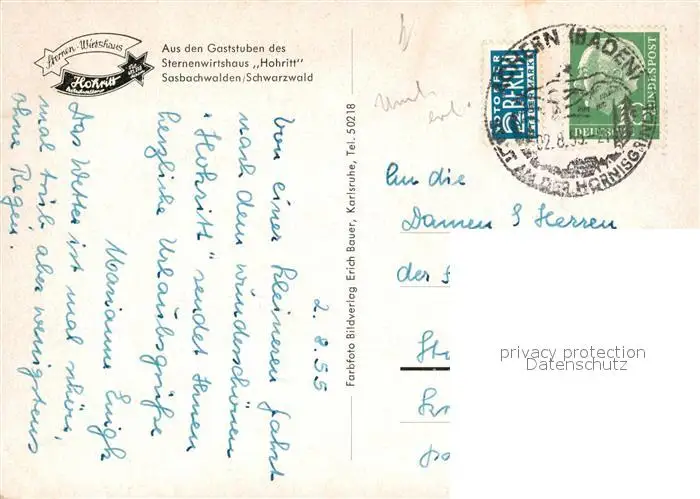 Sternen-Wirtshaus
Hohritt
Aus den Gaststuben des
Sternenwirtshaus „Hohritt"
Sasbachwalden/Schwarzwald
2.8.55
Von einer kleineren Fahrt
nach dem wunderschönen
"Hohritt" sendet Ihnen
herzliche Urlaubsgrüße
Marianne
Das Wetter ist mal schön,
mal trüb, aber wenigstens
ohne Regen.
Farbfoto Bildverlag Erich Bauer, Karlsruhe, Tel. 50218
NOTOPFER
2 BERLIN
STEUERMARKE
BUNDESPOST
10
ACHERN (BADEN)
02.8.55
AN DER HORNISGRINDE
An die
Damen & Herren
der
privacy protection
Datenschutz